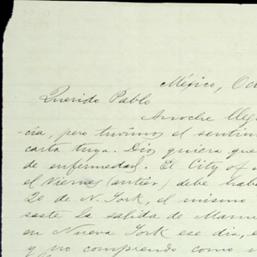 México, Oc
Querido Pablo
Anoche lleg
cia, pero tuvimos el sentim
carta tuya. Dios quiera que
de enfermedad. El City of
el Viernes (antier) debe hab
de N. York, el mismo
la salida de Manu
en Nueva York ese dia, e
y no comprendo como